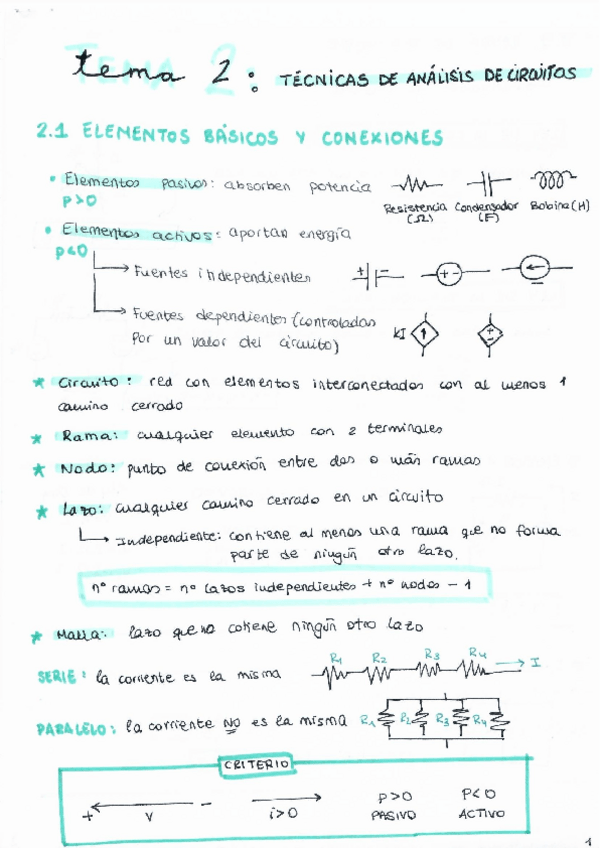 tema 2: TÉCNICAS DE ANÁLISIS DE CIRCUITOS
2.1 ELEMENTOS BÁSICOS Y CONEXIONES
• Elementos pasivos: absorben potencia
P>0
Resistencia (Ω) Condensador (F) Bobina (H)
• Elementos activos: aportan energía
P<0
Fuentes independientes
Fuentes dependientes (controladas
por un valor del circuito)
kI
★ Circuito: red con elementos interconectados con al menos 1
camino cerrado
★ Rama: cualquier elemento con 2 terminales
★ Nodo: punto de conexión entre dos o más ramas
★ Lazo: cualquier camino cerrado en un circuito
Independiente: contiene al menos una rama que no forma
parte de ningún otro lazo.
nº ramas = nº lazos independientes + nº nodos - 1
★ Malla: lazo que no cotiene ningún otro lazo
SERIE: la corriente es la misma
R1 R2 R3 R4 I
PARALELO: la corriente NO es la misma
R1 R2 R3 R4
CRITERIO
+ V -
i>0
P>0 P<0
PASIVO ACTIVO
1